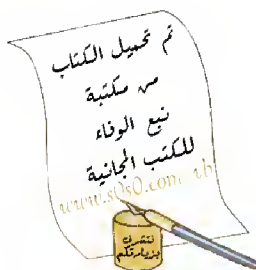 تم تحميل الكتاب
من مكتبة
نبع الوفاء
للكتب المجانية
www.s0s0.com
نتشرف
بزيارتكم